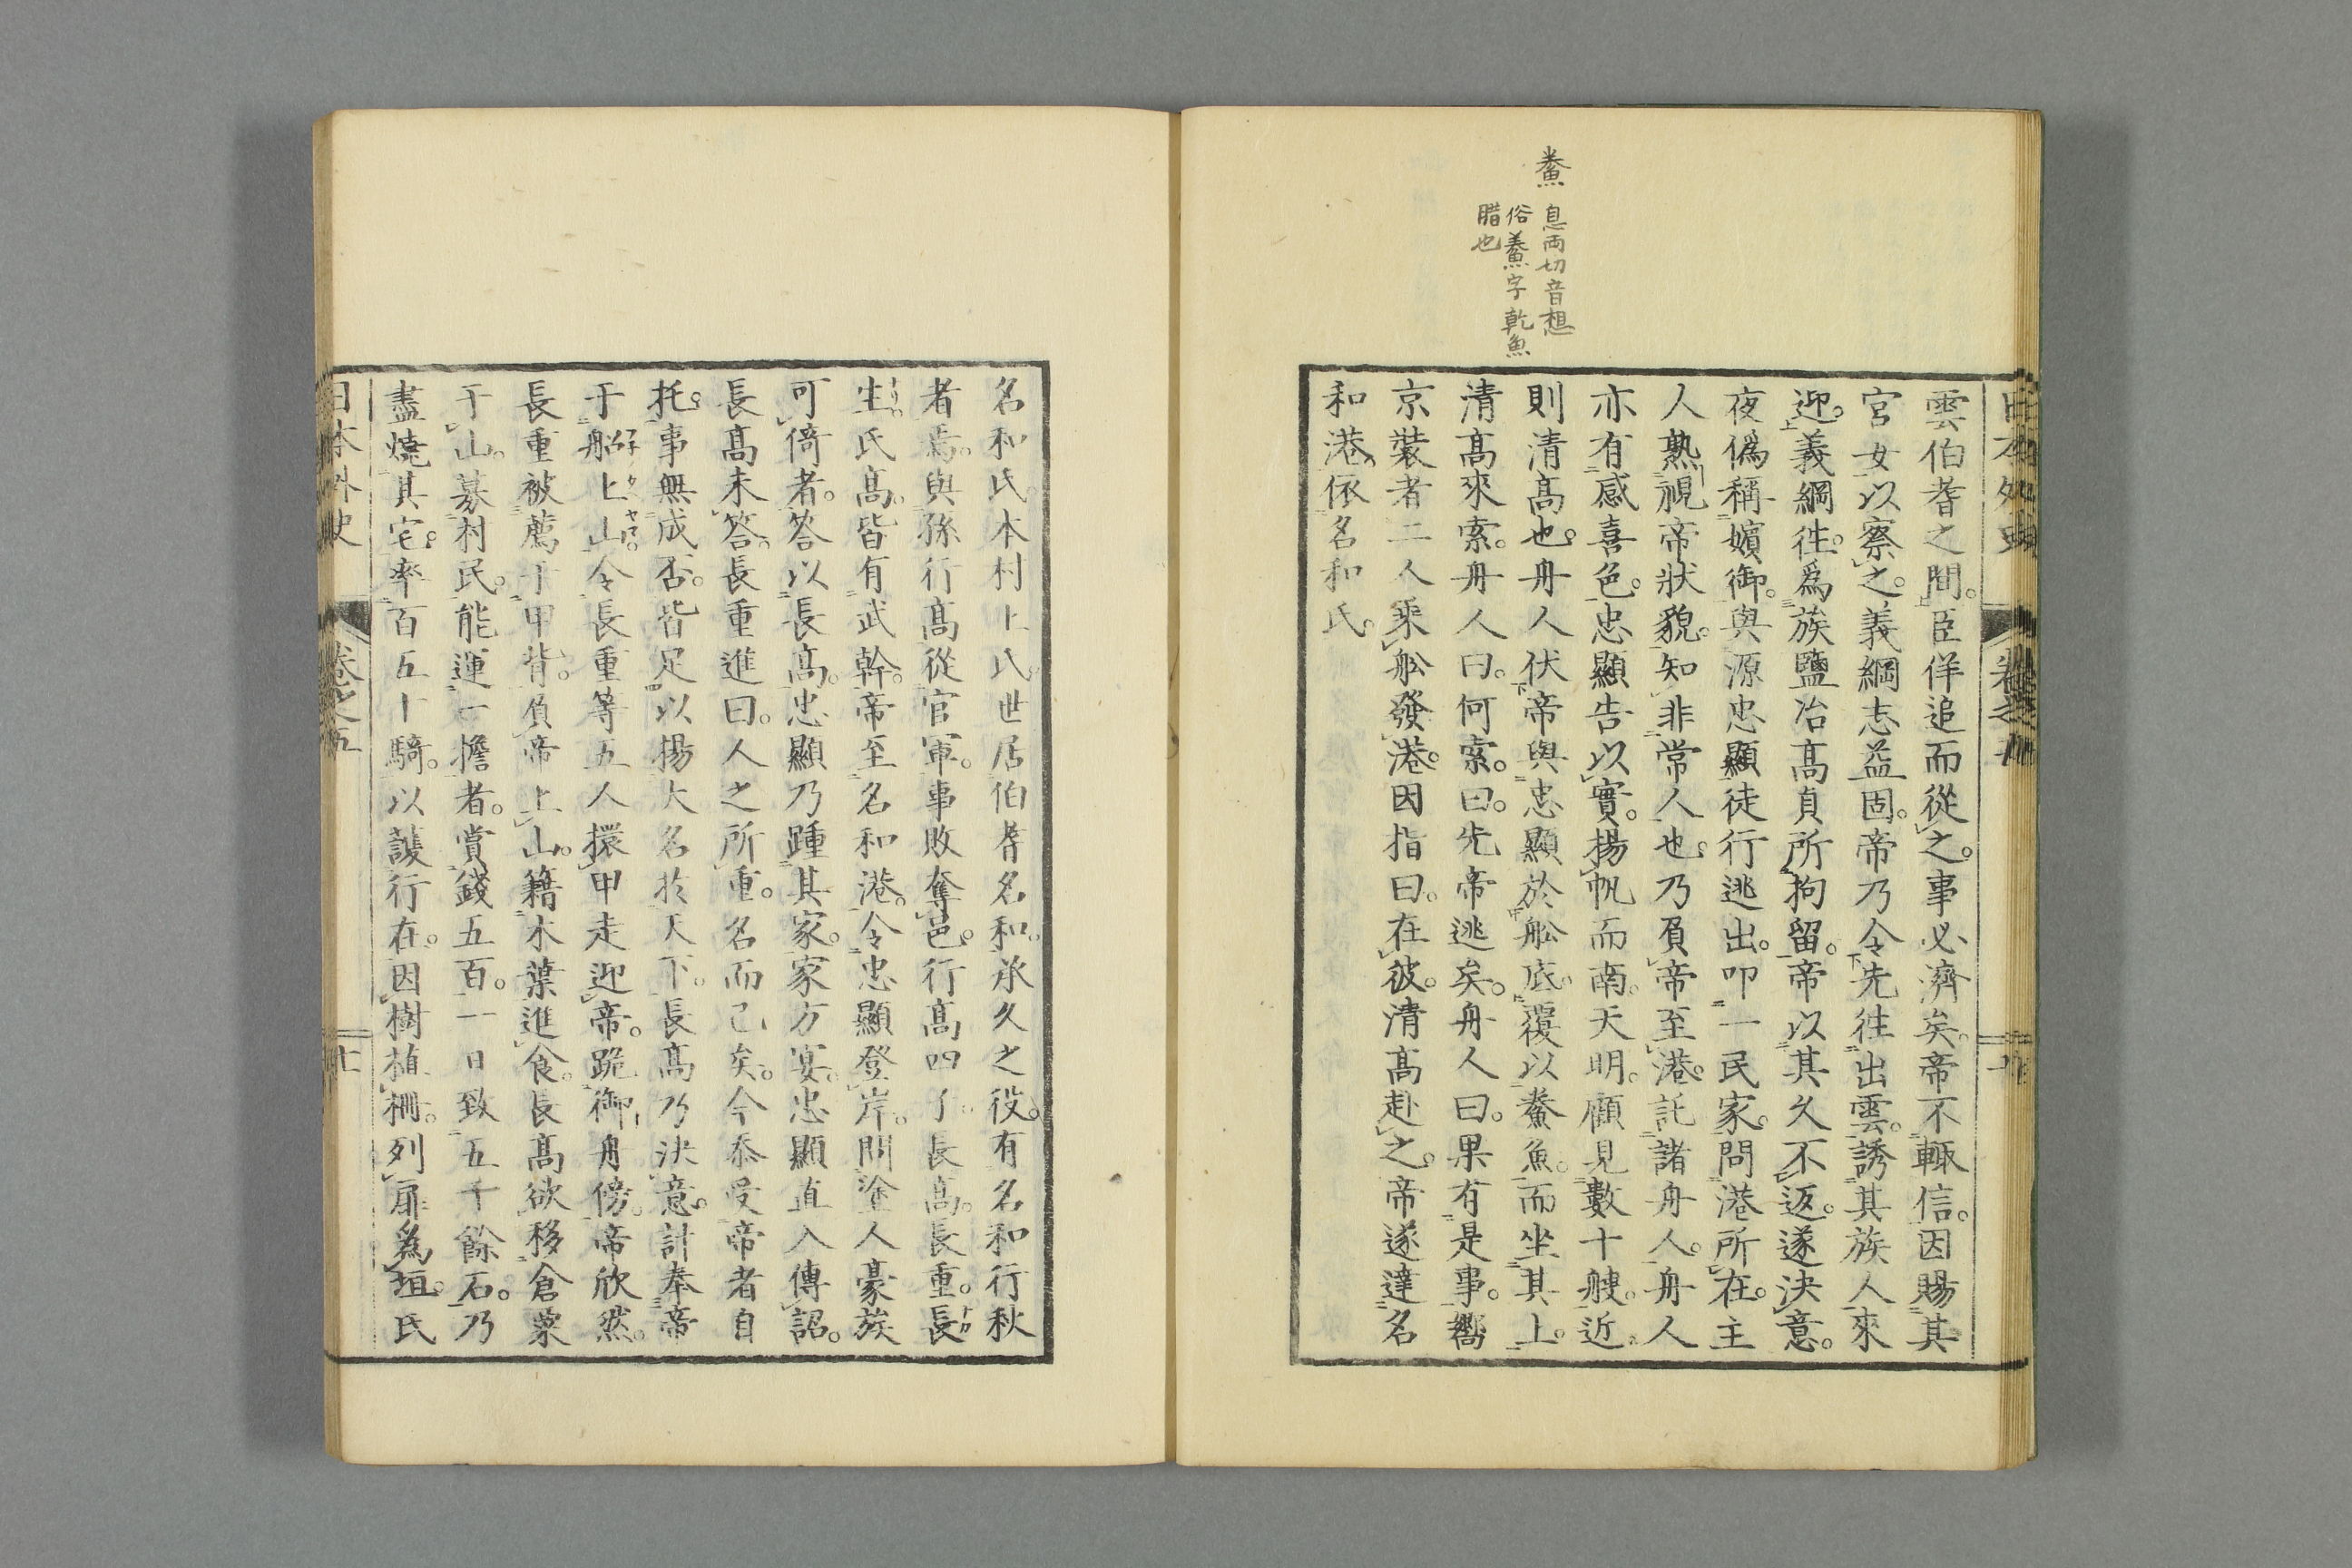 鯗
息両切音想
俗鯗字乾魚
腊也
日本外史
卷之五
雲伯耆之間。臣佯追而從之。事必濟矣。帝不輙信。因賜其
宮女以察之。義綱志益固。帝乃令先徃出雲。誘其族人來
迎。義綱徃。爲族鹽冶髙貞所拘留。帝以其久不返。遂決意。
夜僞稱嬪御。與源忠顯徒行逃出。叩一民家。問港所在。主
人熟視帝狀貌。知非常人也。乃負帝至港。託諸舟人。舟人
亦有感喜色。忠顯告以實。揚帆而南。天明。顧見數十艘。近
則清髙也。舟人伏帝與忠顯於舩底。覆以鯗魚。而坐其上。
清髙來索。舟人曰。何索。曰。先帝逃矣。舟人曰。果有是事。嚮
京裝者二人乘舩發港。因指曰。在彼。清髙赴之。帝遂達名
和港。依名和氏。
名和氏。本村上氏。世居伯耆名和。承久之役。有名和行秋
者焉。與孫行髙從官軍。軍敗奪邑。行髙四子。長髙。長重。長
生。氏髙。皆有武幹。帝至名和港。令忠顯登岸。問塗人豪族
可倚者。答以長髙。忠顯乃踵其家。家方宴。忠顯直入傳詔。
長髙未答。長重進曰。人之所重。名而已矣。今忝受帝者自
托。事無成否。皆足以揚大名於天下。長髙乃決意。計奉帝
于船上山。令長重等五人擐甲走迎帝。跪御舟傍。帝欣然。
長重被薦于甲背。負帝上山。籍木葉進食。長髙欲移倉粟
于山。募村民。能運一擔者。賞錢五百。一日致五千餘石。乃
盡燒其宅。率百五十騎。以護行在。因樹植柵。列扉爲垣。氏
日本外史
卷之五
十一